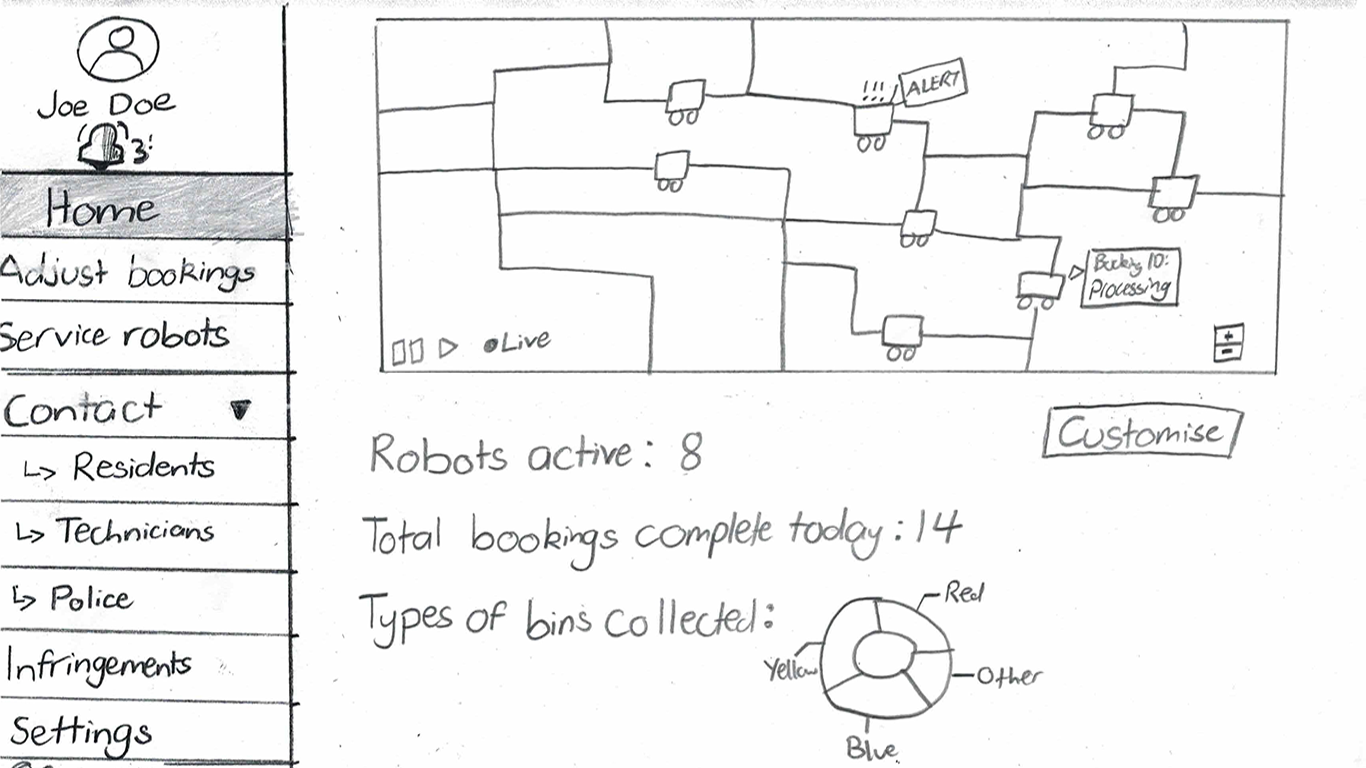 Joe Doe
3
Home
Adjust bookings
Service robots
Contact
Residents
Technicians
Police
Infringements
Settings
!!!
ALERT
Booking ID:
Processing
Live
+
-
Customise
Robots active: 8
Total bookings complete today: 14
Types of bins collected:
Red
Yellow
Other
Blue